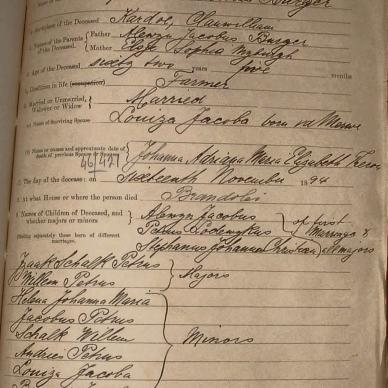 Burger
Birthplace of the Deceased Kardol, Clanwilliam
Names of the Parents of the Deceased. Father Alewyn Jacobus Burger
Mother Elsje Sophia Myburgh
Age of the Deceased sixty two years five months
Condition in life (occupation) Farmer
Married or Unmarried, Widower or Widow Married
Name of Surviving Spouse Louiza Jacoba born vd Merwe
Name or names and approximate date of death of previous Spouse or Spouses Johanna Adriana Maria Elizabeth Theron
46/427
The day of the decease: on Sixteenth November 1894
At what House or where the person died
Names of Children of Deceased, and whether majors or minors Alewyn Jacobus
(Stating separately those born of different marriages. Petrus Lodewykus of first Marriage &
Stephanus Johannes all majors
Izaak Schalk Petrus
Willem Petrus Majors
Helena Johanna Maria
Jacobus Petrus
Schalk Willem Minors
Andries Petrus
Louiza Jacoba